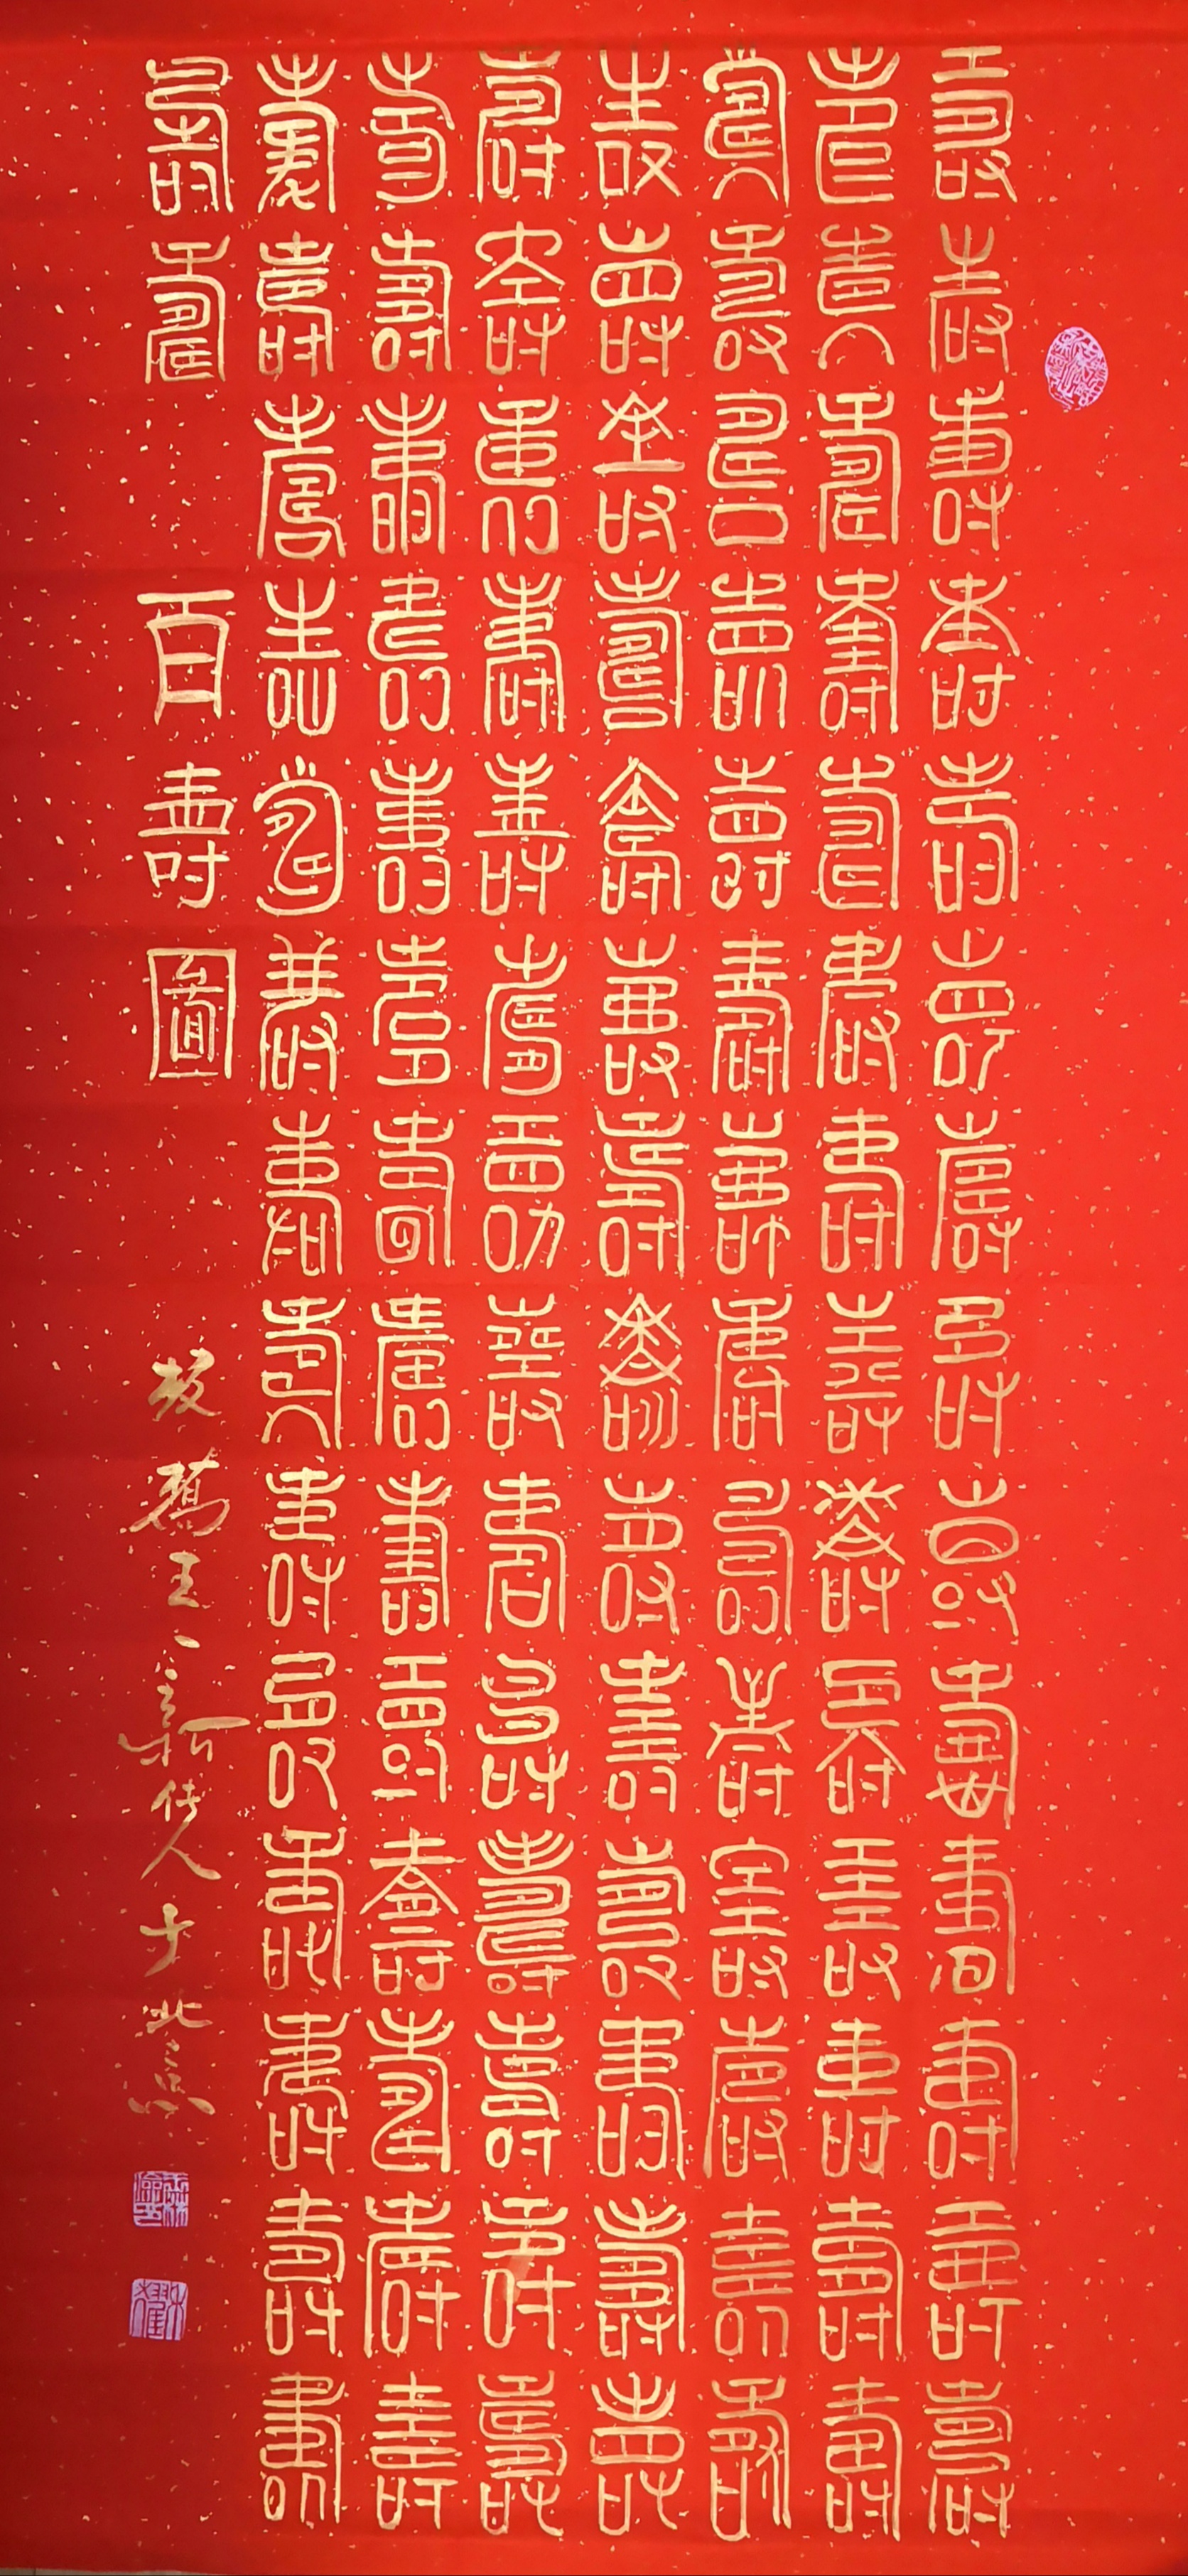 壽壽壽壽壽壽壽壽壽壽壽壽壽壽
壽壽壽壽壽壽壽壽壽壽壽壽壽壽
壽壽壽壽壽壽壽壽壽壽壽壽壽壽
壽壽壽壽壽壽壽壽壽壽壽壽壽壽
壽壽壽壽壽壽壽壽壽壽壽壽壽壽
壽壽壽壽壽壽壽壽壽壽壽壽壽壽
壽壽壽壽壽壽壽壽壽壽壽壽壽壽
壽壽 百壽圖 板橋王一新传人于